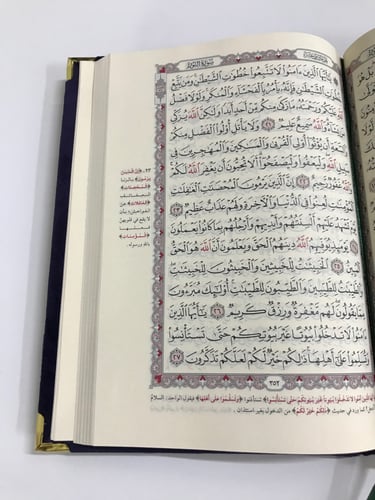 سُورَةُ النُّورِ
۞ يَٰٓأَيُّهَا ٱلَّذِينَ ءَامَنُوا۟ لَا تَتَّبِعُوا۟ خُطُوَٰتِ ٱلشَّيْطَٰنِ وَمَن يَتَّبِعْ
خُطُوَٰتِ ٱلشَّيْطَٰنِ فَإِنَّهُۥ يَأْمُرُ بِٱلْفَحْشَآءِ وَٱلْمُنكَرِ وَلَوْلَا فَضْلُ
ٱللَّهِ عَلَيْكُمْ وَرَحْمَتُهُۥ مَا زَكَىٰ مِنكُم مِّنْ أَحَدٍ أَبَدًا وَلَٰكِنَّ ٱللَّهَ يُزَكِّى
مَن يَشَآءُ وَٱللَّهُ سَمِيعٌ عَلِيمٌ ٢١ وَلَا يَأْتَلِ أُو۟لُوا۟ ٱلْفَضْلِ مِنكُمْ
وَٱلسَّعَةِ أَن يُؤْتُوٓا۟ أُو۟لِى ٱلْقُرْبَىٰ وَٱلْمَسَٰكِينَ وَٱلْمُهَٰجِرِينَ فِى
سَبِيلِ ٱللَّهِ وَلْيَعْفُوا۟ وَلْيَصْفَحُوٓا۟ أَلَا تُحِبُّونَ أَن يَغْفِرَ ٱللَّهُ لَكُمْ
وَٱللَّهُ غَفُورٌ رَّحِيمٌ ٢٢ إِنَّ ٱلَّذِينَ يَرْمُونَ ٱلْمُحْصَنَٰتِ ٱلْغَٰفِلَٰتِ
ٱلْمُؤْمِنَٰتِ لُعِنُوا۟ فِى ٱلدُّنْيَا وَٱلْءَاخِرَةِ وَلَهُمْ عَذَابٌ عَظِيمٌ ٢٣
يَوْمَ تَشْهَدُ عَلَيْهِمْ أَلْسِنَتُهُمْ وَأَيْدِيهِمْ وَأَرْجُلُهُم بِمَا كَانُوا۟ يَعْمَلُونَ
٢٤ يَوْمَئِذٍ يُوَفِّيهِمُ ٱللَّهُ دِينَهُمُ ٱلْحَقَّ وَيَعْلَمُونَ أَنَّ ٱللَّهَ هُوَ ٱلْحَقُّ
ٱلْمُبِينُ ٢٥ ٱلْخَبِيثَٰتُ لِلْخَبِيثِينَ وَٱلْخَبِيثُونَ لِلْخَبِيثَٰتِ
وَٱلطَّيِّبَٰتُ لِلطَّيِّبِينَ وَٱلطَّيِّبُونَ لِلطَّيِّبَٰتِ أُو۟لَٰٓئِكَ مُبَرَّءُونَ
مِمَّا يَقُولُونَ لَهُم مَّغْفِرَةٌ وَرِزْقٌ كَرِيمٌ ٢٦ يَٰٓأَيُّهَا ٱلَّذِينَ
ءَامَنُوا۟ لَا تَدْخُلُوا۟ بُيُوتًا غَيْرَ بُيُوتِكُمْ حَتَّىٰ تَسْتَأْنِسُوا۟
وَتُسَلِّمُوا۟ عَلَىٰٓ أَهْلِهَا ذَٰلِكُمْ خَيْرٌ لَّكُمْ لَعَلَّكُمْ تَذَكَّرُونَ ٢٧
٣٥٢
٢٣- ﴿إن الذين
يرمون﴾ بالزنا
﴿المحصنات﴾
العفائف
﴿الغافلات﴾ عن
الفواحش؛ بأن
لا يقع في قلوبهن
فعلها
﴿المؤمنات﴾
بالله ورسوله.
آمنوا لا تدخلوا بيوتا غير بيوتكم حتى تستأنسوا﴾ تستأذنوا ﴿وتسلموا على أهلها﴾ فيقول الواحد: السلام
كما ورد في حديث ﴿ذلكم خير لكم﴾ من الدخول بغير استئذان